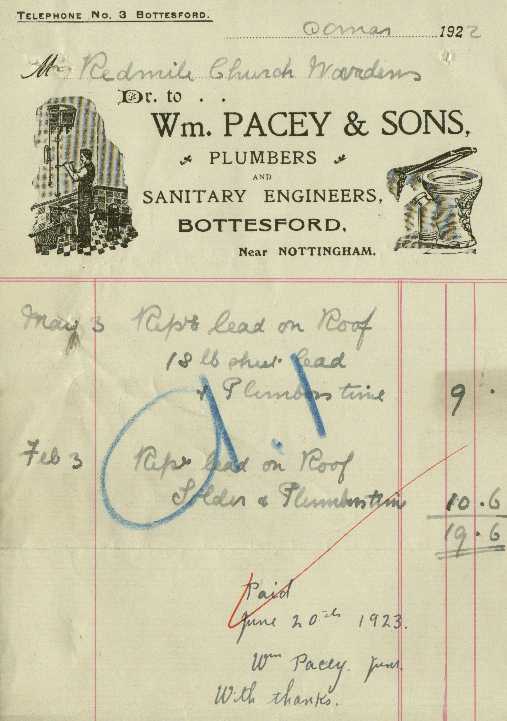 TELEPHONE NO. 3 BOTTESFORD.
1922
Redmile Church Wardens
Dr. to . .
WM. PACEY & SONS,
PLUMBERS
AND
SANITARY ENGINEERS,
BOTTESFORD,
Near NOTTINGHAM.
May 3 Reprs lead on Roof
18 lb sheet lead
& Plumbers time 9 .
Feb 3 Reprs lead on Roof
Solder & Plumbers time 10.6
19.6
Paid
June 20th 1923.
Wm Pacey. Junr.
With thanks.